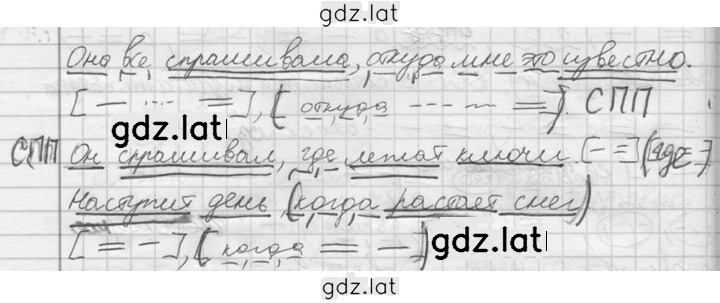 gdz.lat
Она всё спрашивала, откуда мне это известно.
[ — ··· = ], ( откуда --- --- = ). СПП
gdz.lat
СПП Он спрашивал, где лежат ключи. [ - = ] (где = -)
Наступит день, (когда растает снег)
[ = — ], ( когда = — )
gdz.lat
gdz.lat